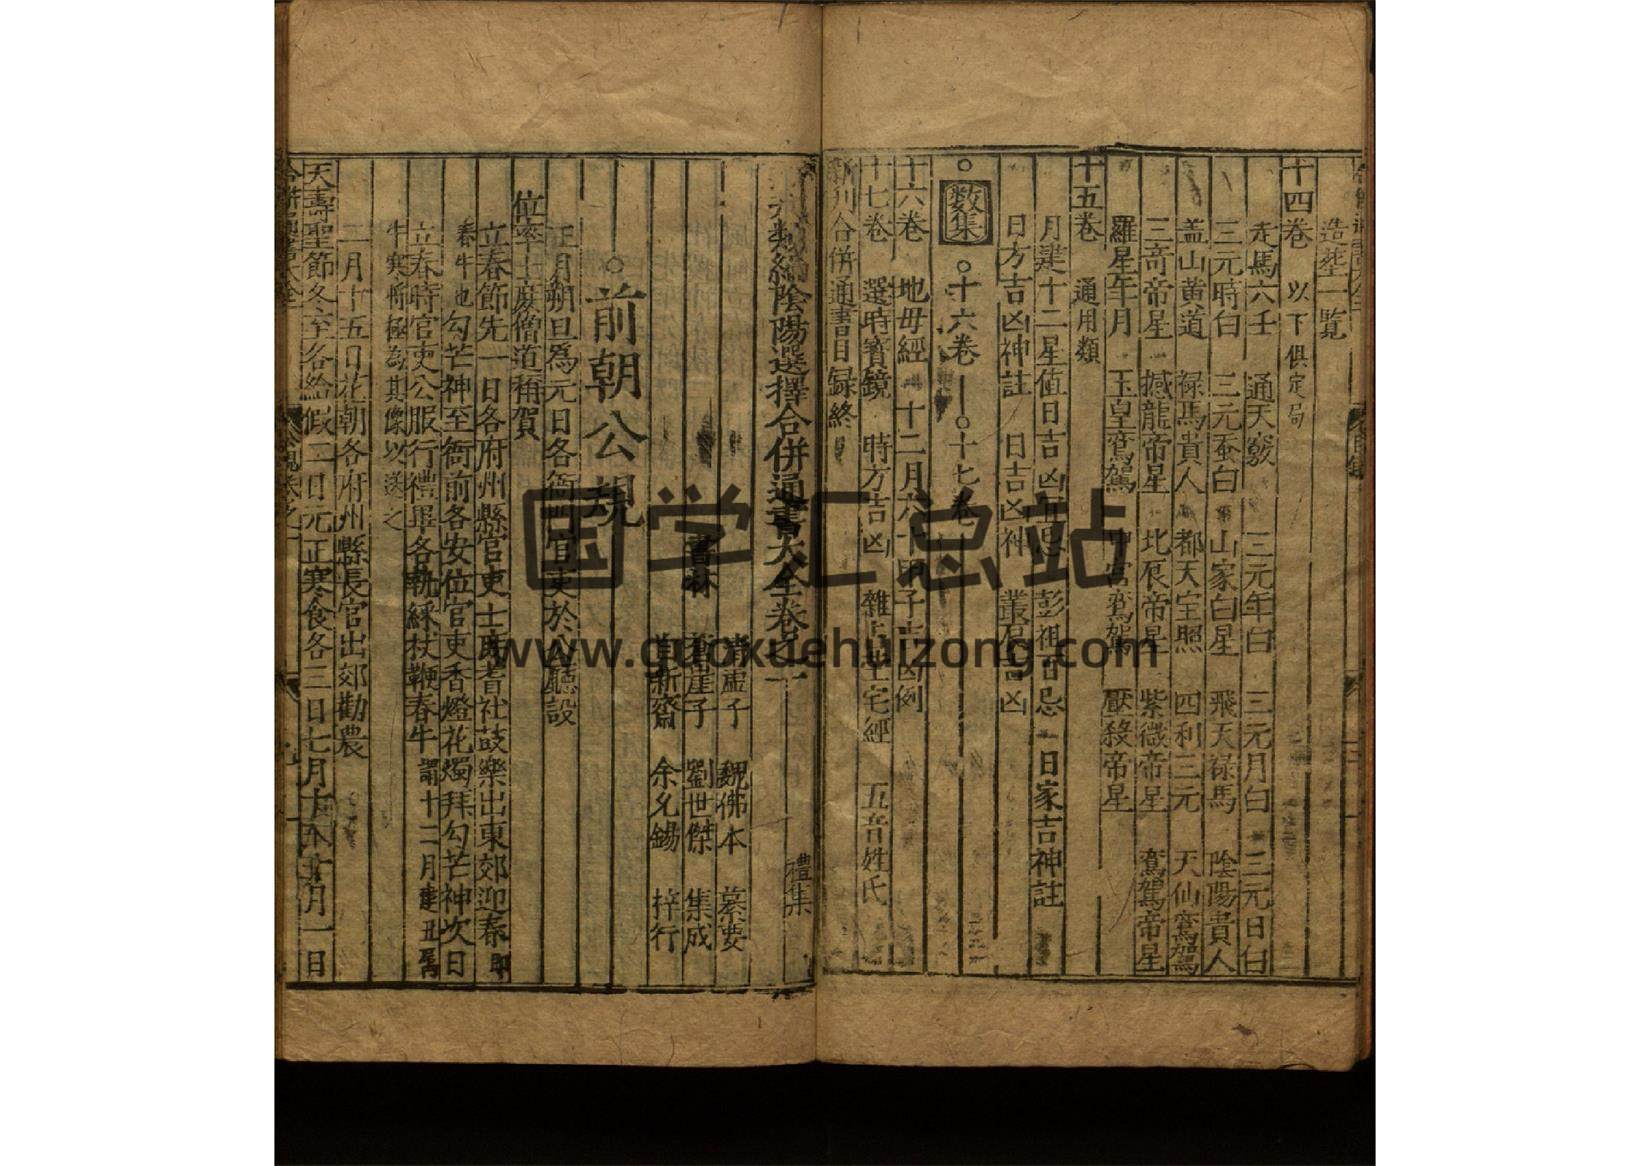 造葬一覽
十四卷 以下俱定局
走馬六壬 通天竅 三元年白 三元月白 三元日白
三元時白 三元蚕白 山家白星 飛天祿馬 陰陽貴人
盖山黄道 祿馬貴人 都天宝照 四利三元 天仙鸞駕
三奇帝星 撼龍帝星 北辰帝星 紫微帝星 鸞駕帝星
羅星年月 玉皇鸞駕 中宮鸞駕 壓殺帝星
十五卷 通用類
月建十二星值日吉凶宜忌 彭祖百忌 日家吉神註
日方吉凶神註 日吉凶神 叢辰吉凶
數集 十六卷 十七卷
十六卷 地毋經 十二月六十甲子吉凶例
十七卷 選時寳鏡 時方吉凶 雜 宅經 五音姓氏
新刊合併通書目録終
類編陰陽選擇合併通書大全卷之一
禮集
清虛子 魏佛本 纂要
書林 蒼崖子 劉世傑 集成
自新齋 余允錫 梓行
前朝公規
正月朔旦爲元日各衙門官吏於公廳設
位率士庶僧道稱賀
立春節先一日各府州縣官吏士庶耆社鼓樂出東郊迎春即
春牛也勾芒神至衙前各安位官吏香燈花燭拜勾芒神次日
立春時官吏公服行禮畢各執綵杖鞭春牛謂十二月建丑属
牛寒將極為其像以送之
二月十五日花朝各府州縣長官出郊勸農
天壽聖節冬至各給假二日元正寒食各三日七月十五十月一日
国学汇总站
www.guoxuehuizong.com